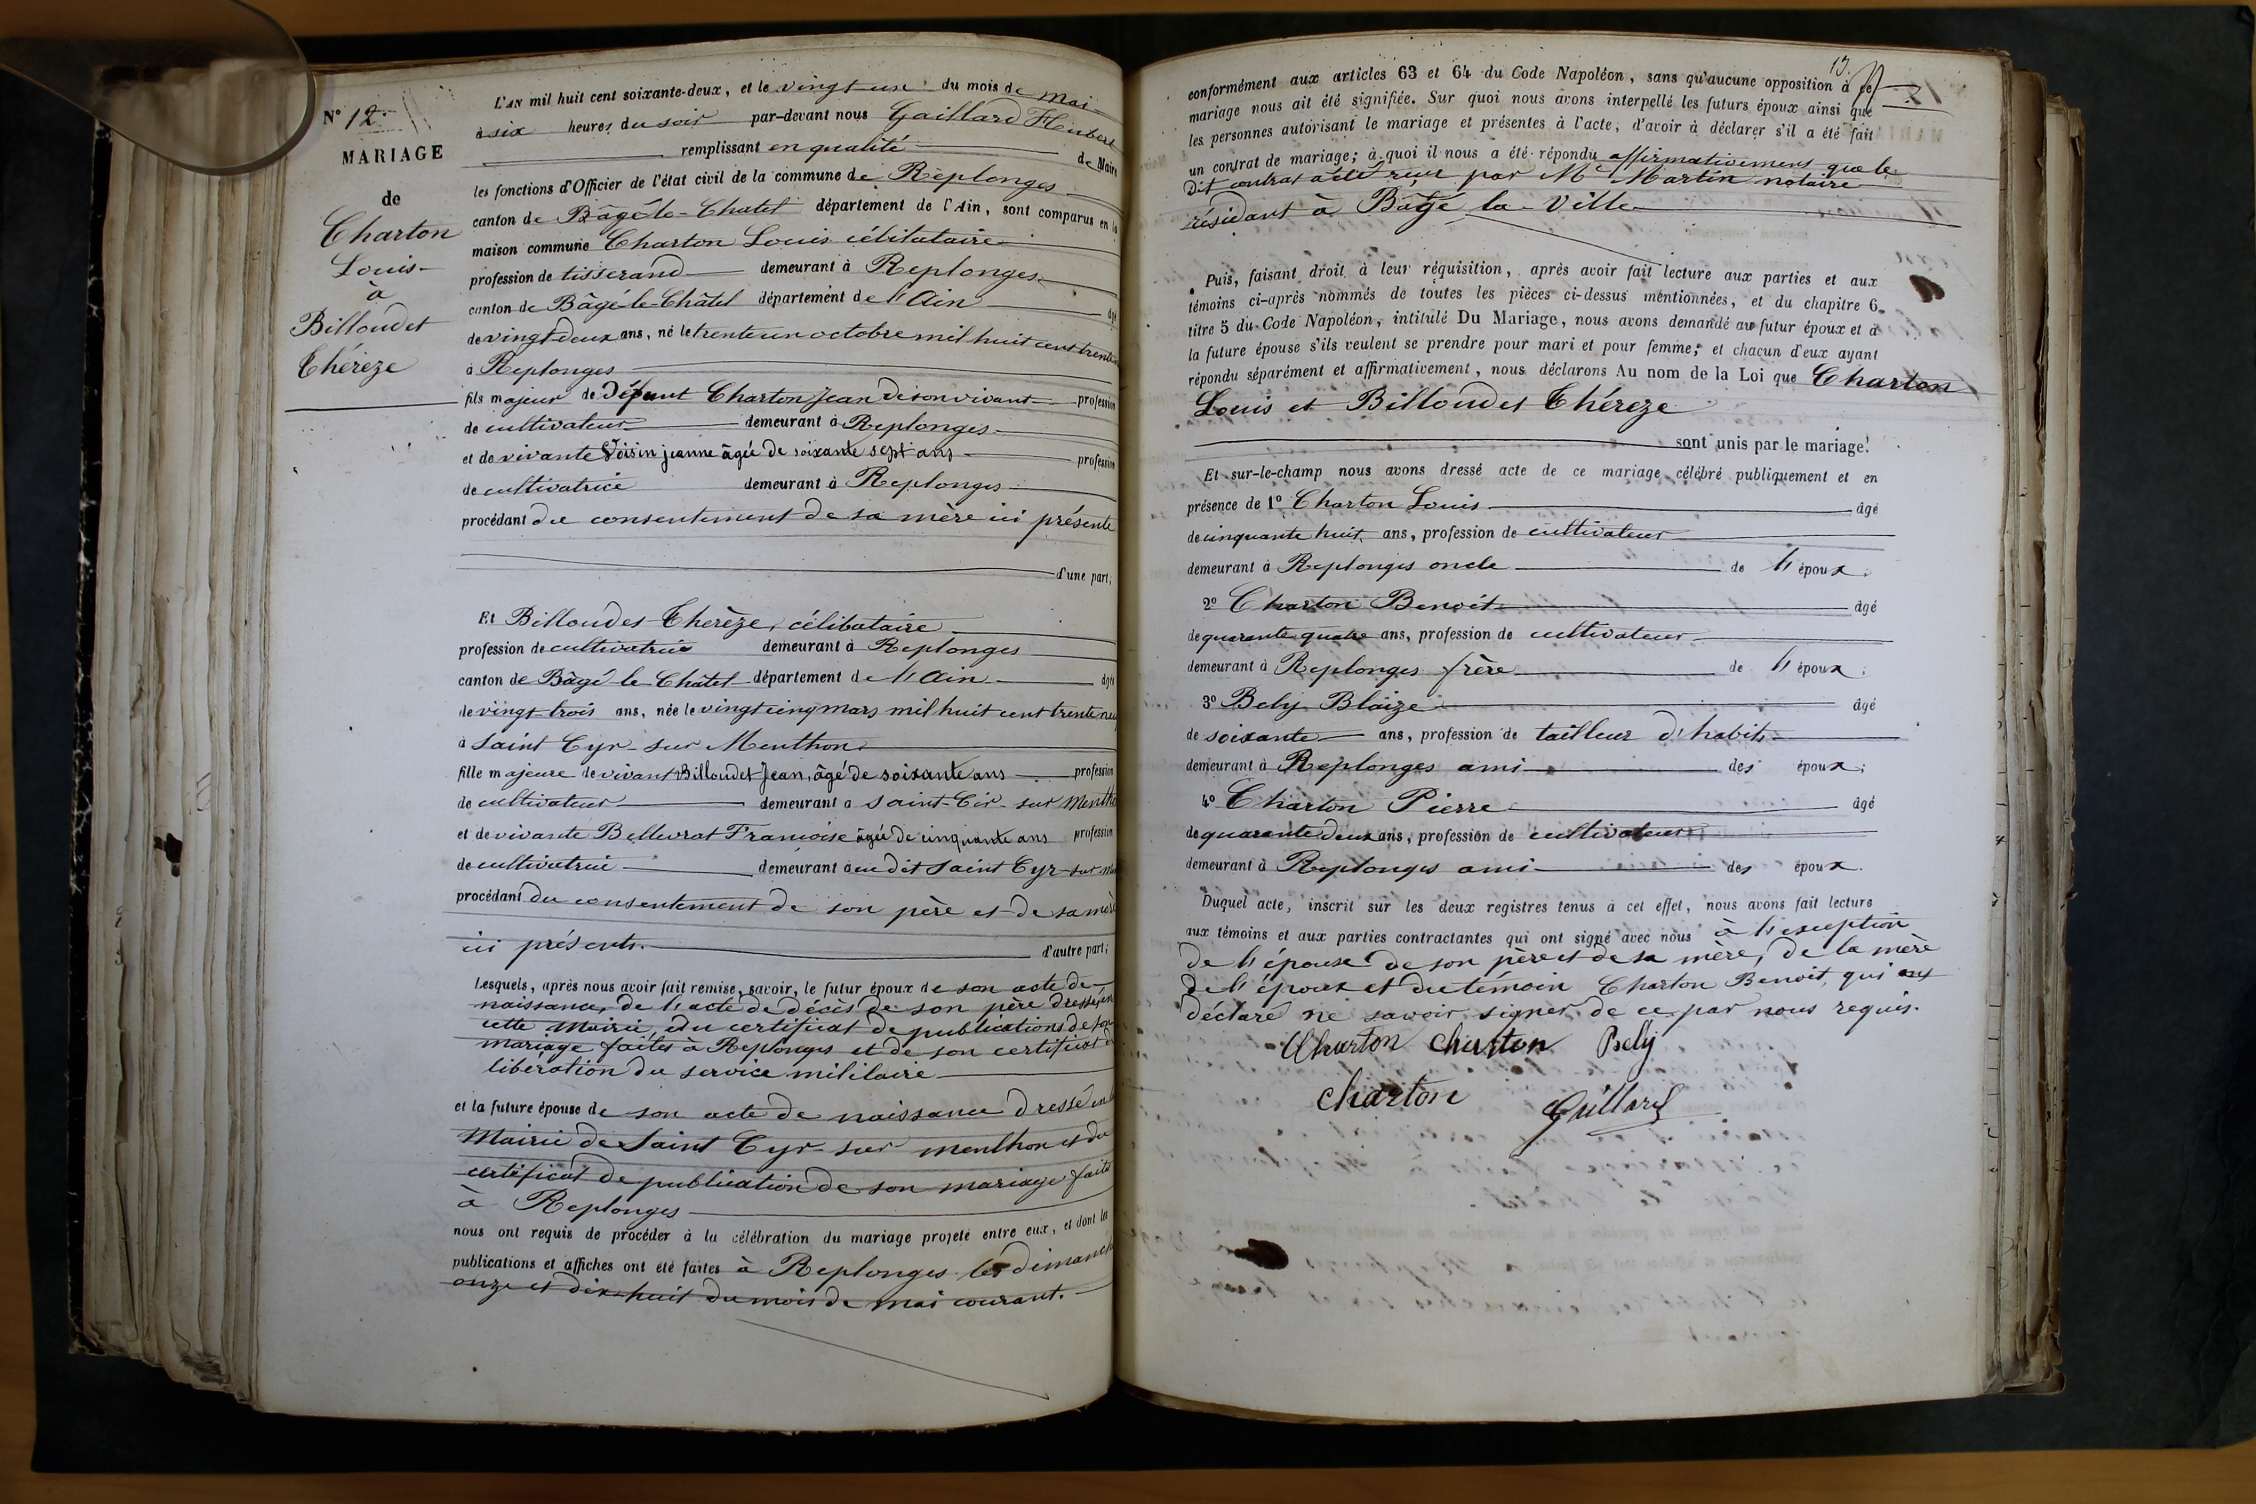 N° 12.
MARIAGE
de
Charton
Louis
à
Billoudet
Thérèze
L'AN mil huit cent soixante-deux, et le vingt un du mois de Mai
à six heures du soir par-devant nous Gaillard Hubert
remplissant en qualité de Maire
les fonctions d'Officier de l'état civil de la commune de Replonges
canton de Bâgé-le-Chatel département de l'Ain, sont comparus en la
maison commune Charton Louis célibataire
profession de tisserand demeurant à Replonges
canton de Bâgé-le-Châtel département de l'Ain âgé
de vingt-deux ans, né le trente un octobre mil huit cent trente
à Replonges
fils majeur de Défunt Charton Jean de son vivant profession
de cultivateur demeurant à Replonges
et de vivante Voisin jeanne âgée de soixante sept ans profession
de cultivatrice demeurant à Replonges
procédant du consentement de sa mère ici présente
d'une part;
Et Billoudet Thérèze, célibataire
profession de cultivatrice demeurant à Replonges
canton de Bâgé-le-Châtel département de l'Ain âgée
de vingt-trois ans, née le vingt cinq mars mil huit cent trente neuf
à Saint Cyr sur Menthon
fille majeure de vivant Billoudet Jean, âgé de soixante ans profession
de cultivateur demeurant à Saint-Cir-sur Mentho
et de vivante Bellevrat Françoise âgée de cinquante ans profession
de cultivatrice demeurant au dit Saint Cyr-sur-M
procédant du consentement de son père et de sa mère
ici présents. d'autre part;
Lesquels, après nous avoir fait remise, savoir, le futur époux de son acte de
naissance, de l'acte de décès de son père dressé en
cette Mairie, du certificat de publications de son
mariage faites à Replonges et de son certificat de
libération du service militaire
et la future épouse de son acte de naissance dressé en la
Mairie de Saint Cyr-sur menthon et du
certificat de publication de son mariage faite
à Replonges
nous ont requis de procéder à la célébration du mariage projeté entre eux, et dont les
publications et affiches ont été faites à Replonges les dimanche
onze et dix-huit du mois de mai courant.
13.
conformément aux articles 63 et 64 du Code Napoléon, sans qu'aucune opposition à ce
mariage nous ait été signifiée. Sur quoi nous avons interpellé les futurs époux ainsi que
les personnes autorisant le mariage et présentes à l'acte, d'avoir à déclarer s'il a été fait
un contrat de mariage; à quoi il nous a été répondu affirmativement que le
Dit contrat a été reçu par Me Martin notaire
résidant à Bâgé la-Ville
Puis, faisant droit à leur réquisition, après avoir fait lecture aux parties et aux
témoins ci-après nommés de toutes les pièces ci-dessus mentionnées, et du chapitre 6
titre 5 du Code Napoléon, intitulé Du Mariage, nous avons demandé au futur époux et à
la future épouse s'ils veulent se prendre pour mari et pour femme; et chacun d'eux ayant
répondu séparément et affirmativement, nous déclarons Au nom de la Loi que Charton
Louis et Billoudet Thérèze
sont unis par le mariage.
Et sur-le-champ nous avons dressé acte de ce mariage célébré publiquement et en
présence de 1° Charton Louis âgé
de cinquante huit ans, profession de cultivateur
demeurant à Replonges oncle de l'époux;
2° Charton Benoit âgé
de quarante quatre ans, profession de cultivateur
demeurant à Replonges frère de l'époux;
3° Bely Blaize âgé
de soixante ans, profession de tailleur d'habits
demeurant à Replonges ami des époux;
4° Charton Pierre âgé
de quarante deux ans, profession de cultivateur
demeurant à Replonges ami des époux.
Duquel acte, inscrit sur les deux registres tenus à cet effet, nous avons fait lecture
aux témoins et aux parties contractantes qui ont signé avec nous à l'exception
de l'épouse de son père et de sa mère, de la mère
de l'époux et du témoin Charton Benoit, qui ont
déclaré ne savoir signer de ce par nous requis.
Charton Charton Bely
Charton Gaillard